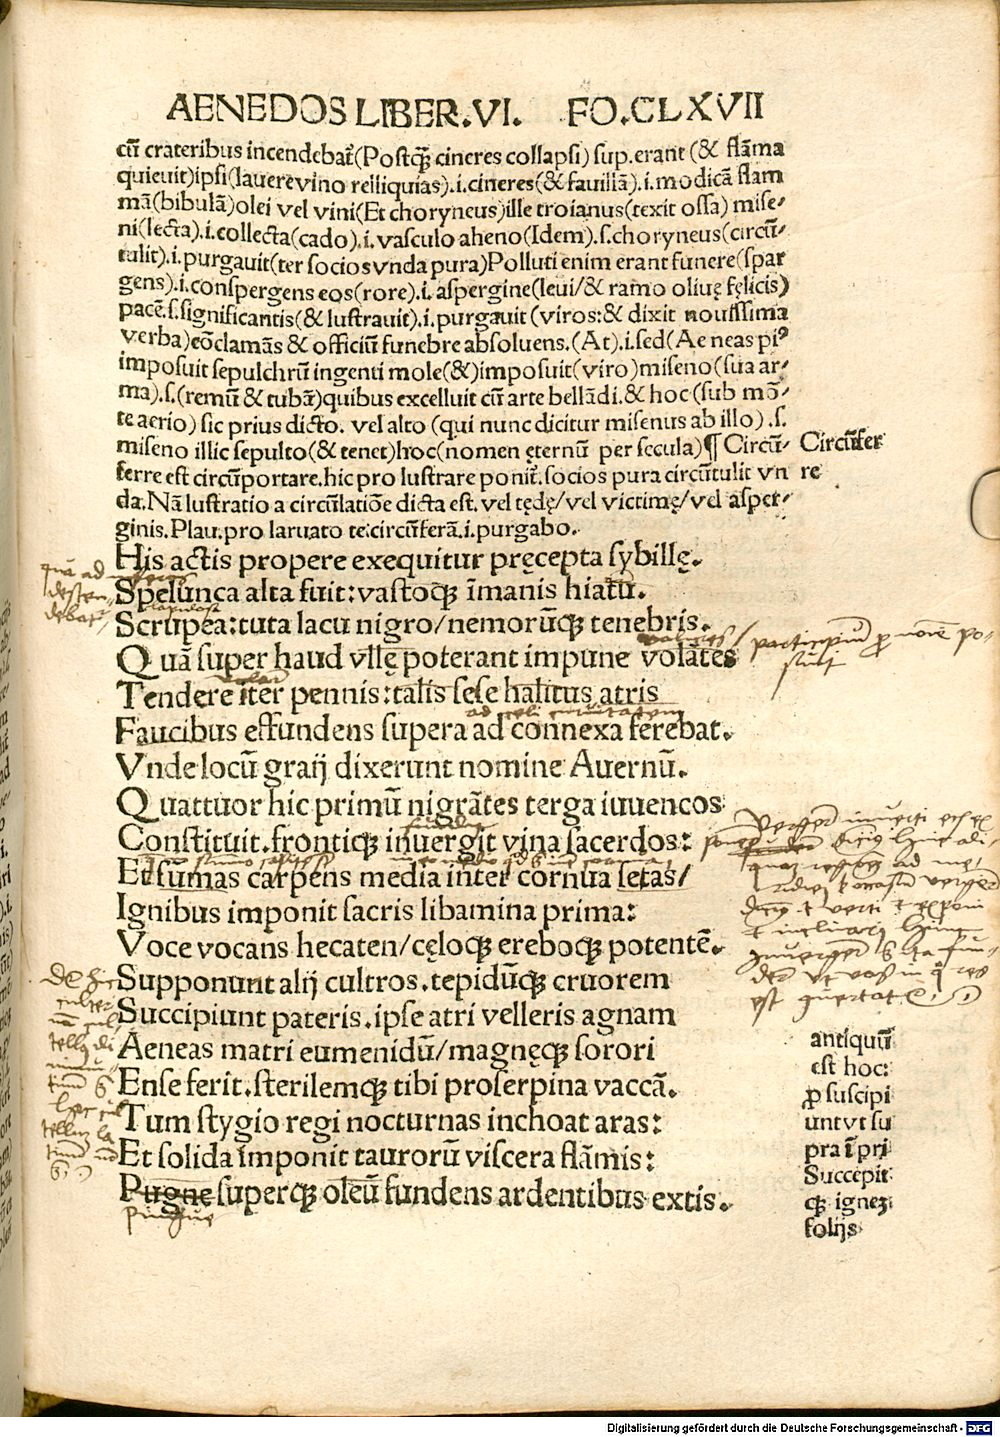 AENEDOS LIBER.VI. FO.CLXVII
cū crateribus incendebat̄(Postq̄ cineres collapsi) sup.erant (& flāma
quieuit)ipsi(lauere vino relliquias).i.cineres(& fauillā).i.modicā flam
mā(bibulā)olei vel vini(Et choryneus)ille troianus(texit ossa) mise-
ni(lecta).i.collecta(cado).i.vasculo aheno(Idem).s.choryneus(circū-
tulit).i.purgauit(ter socios vnda pura)Polluti enim erant funere(spar
gens).i.conspergens eos(rore).i.aspergine(leui/& ramo oliuę fęlicis)
pacē.s.significantis(& lustrauit).i.purgauit (viros:& dixit nouissima
verba)cōclamās & officiū funebre absoluens.(At).i.sed(Ae neas piꝰ
imposuit sepulchrū ingenti mole(&)imposuit(viro)miseno(sua ar-
ma).s.(remū & tubā)quibus excelluit cū arte bellādi.& hoc(sub mō-
te aerio) sic prius dicto. vel alto (qui nunc dicitur misenus ab illo).s.
miseno illic sepulto(& tenet)hoc(nomen ęternū per secula)¶ Circū-
Circūfer
ferre est circūportare.hic pro lustrare ponit̄.socios pura circūtulit vn
re
da.Nā lustratio a circūlatiōe dicta est.vel tędę/vel victimę/vel asper-
ginis.Plau.pro laruato te:circūferā.i.purgabo.
His actis propere exequitur pręcepta sybillę.
Spelunca alta fuit:vastoq̄ īmanis hiatū.
Scrupea:tuta lacu nigro/nemorūq̄ tenebris.
Quā super haud vllę poterant impune volātes
Tendere iter pennis:talis sese halitus atris
Faucibus effundens supera ad connexa ferebat.
Vnde locū graij dixerunt nomine Auernū.
Quattuor hic primū nigrātes terga iuuencos
Constituit.frontiq̄ inuergit vina sacerdos:
Et sūmas carpens media inter cornua setas/
Ignibus imponit sacris libamina prima:
Voce vocans hecaten/cęloq̄ ereboq̄ potentē.
Supponunt alij cultros.tepidūq̄ cruorem
Succipiunt pateris.ipse atri velleris agnam
Aeneas matri eumenidū/magnęq̄ sorori
Ense ferit.sterilemq̄ tibi proserpina vaccā.
Tum stygio regi nocturnas inchoat aras:
Et solida imponit taurorū viscera flāmis:
Pugne superq̄ oleū fundens ardentibus extis.
pingue
antiquū
est hoc:
ꝓ suscipi
unt vt su
pra ī pri
Succepit
q̄ ignez
folijs
Digitalisierung gefördert durch die Deutsche Forschungsgemeinschaft - DFG